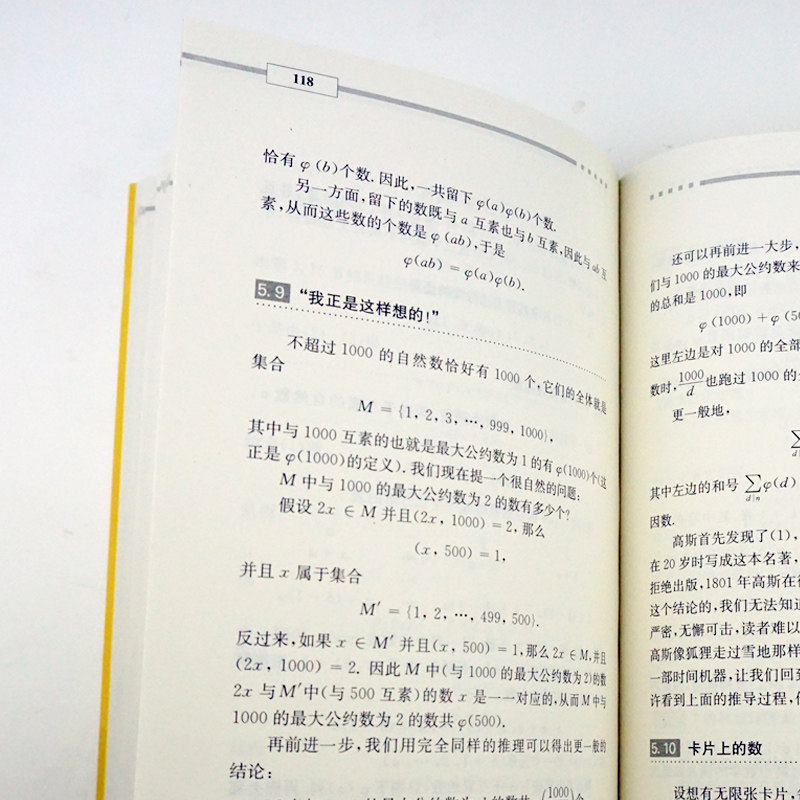 118
恰有 φ(b)个数. 因此,一共留下 φ(a)φ(b)个数.
另一方面,留下的数既与 a 互素也与 b 互素,因此与 ab 互
素,从而这些数的个数是 φ(ab),于是
φ(ab) = φ(a)φ(b).
5.9 “我正是这样想的!”
不超过 1000 的自然数恰好有 1000 个,它们的全体就是
集合
M = {1, 2, 3, …, 999, 1000},
其中与 1000 互素的也就是最大公约数为 1 的有 φ(1000)个(这
正是 φ(1000)的定义). 我们现在提一个很自然的问题:
M 中与 1000 的最大公约数为 2 的数有多少个?
假设 2x ∈ M 并且(2x, 1000) = 2, 那么
(x, 500) = 1,
并且 x 属于集合
M′ = {1, 2, …, 499, 500}.
反过来,如果 x ∈ M′ 并且(x, 500) = 1,那么 2x ∈ M,并且
(2x, 1000) = 2. 因此 M 中(与 1000 的最大公约数为2)的数
2x 与M′中(与 500 互素)的数 x 是一一对应的,从而 M 中与
1000 的最大公约数为 2 的数共 φ(500).
再前进一步,我们用完全同样的推理可以得出更一般的
结论:
还可以再前进一大步,
们与 1000 的最大公约数来
的总和是 1000,即
φ(1000) + φ(50
这里左边是对 1000 的全部
数时, 1000/d 也跑过 1000 的
更一般地,
∑
其中左边的和号 ∑φ(d)
d|n
因数.
高斯首先发现了(1),
在 20 岁时写成这本名著,
拒绝出版, 1801 年高斯在
这个结论的,我们无法知道
严密,无懈可击,读者难以
高斯像狐狸走过雪地那样
一部时间机器,让我们回到
许看到上面的推导过程,
5.10 卡片上的数
设想有无限张卡片,